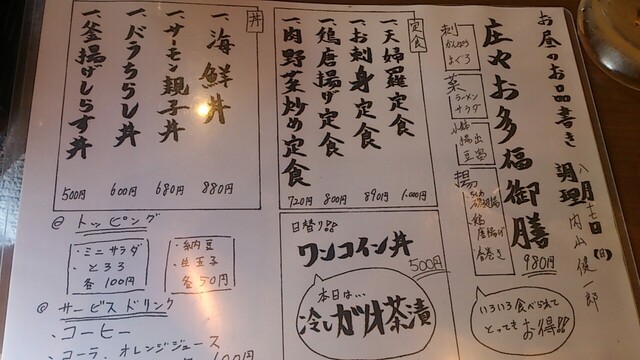 お昼のお品書き
調理 内山 健一郎
八月十七日(日)
庄々お多福御膳
980円
刺 かんぱち
まぐろ
菜 ラーメン
サラダ
小鉢 揚出
豆腐
揚
鶏
唐揚げ
春巻き
いろいろ食べられて
とってもお得!!
定食
一、天婦羅定食 1,000円
一、お刺身定食 890円
一、鶏唐揚げ定食 800円
一、肉野菜炒め定食 720円
日替り!!
ワンコイン丼
500円
本日は…
冷しガリ茶漬
丼
一、海鮮丼 880円
一、サーモン親子丼 680円
一、バラちらし丼 600円
一、釜揚げしらす丼 500円
@ トッピング
・ミニサラダ
・とろろ
各100円
・納豆
・生玉子
各50円
@ サービスドリンク
・コーヒー
・コーラ、オレンジジュース
100円